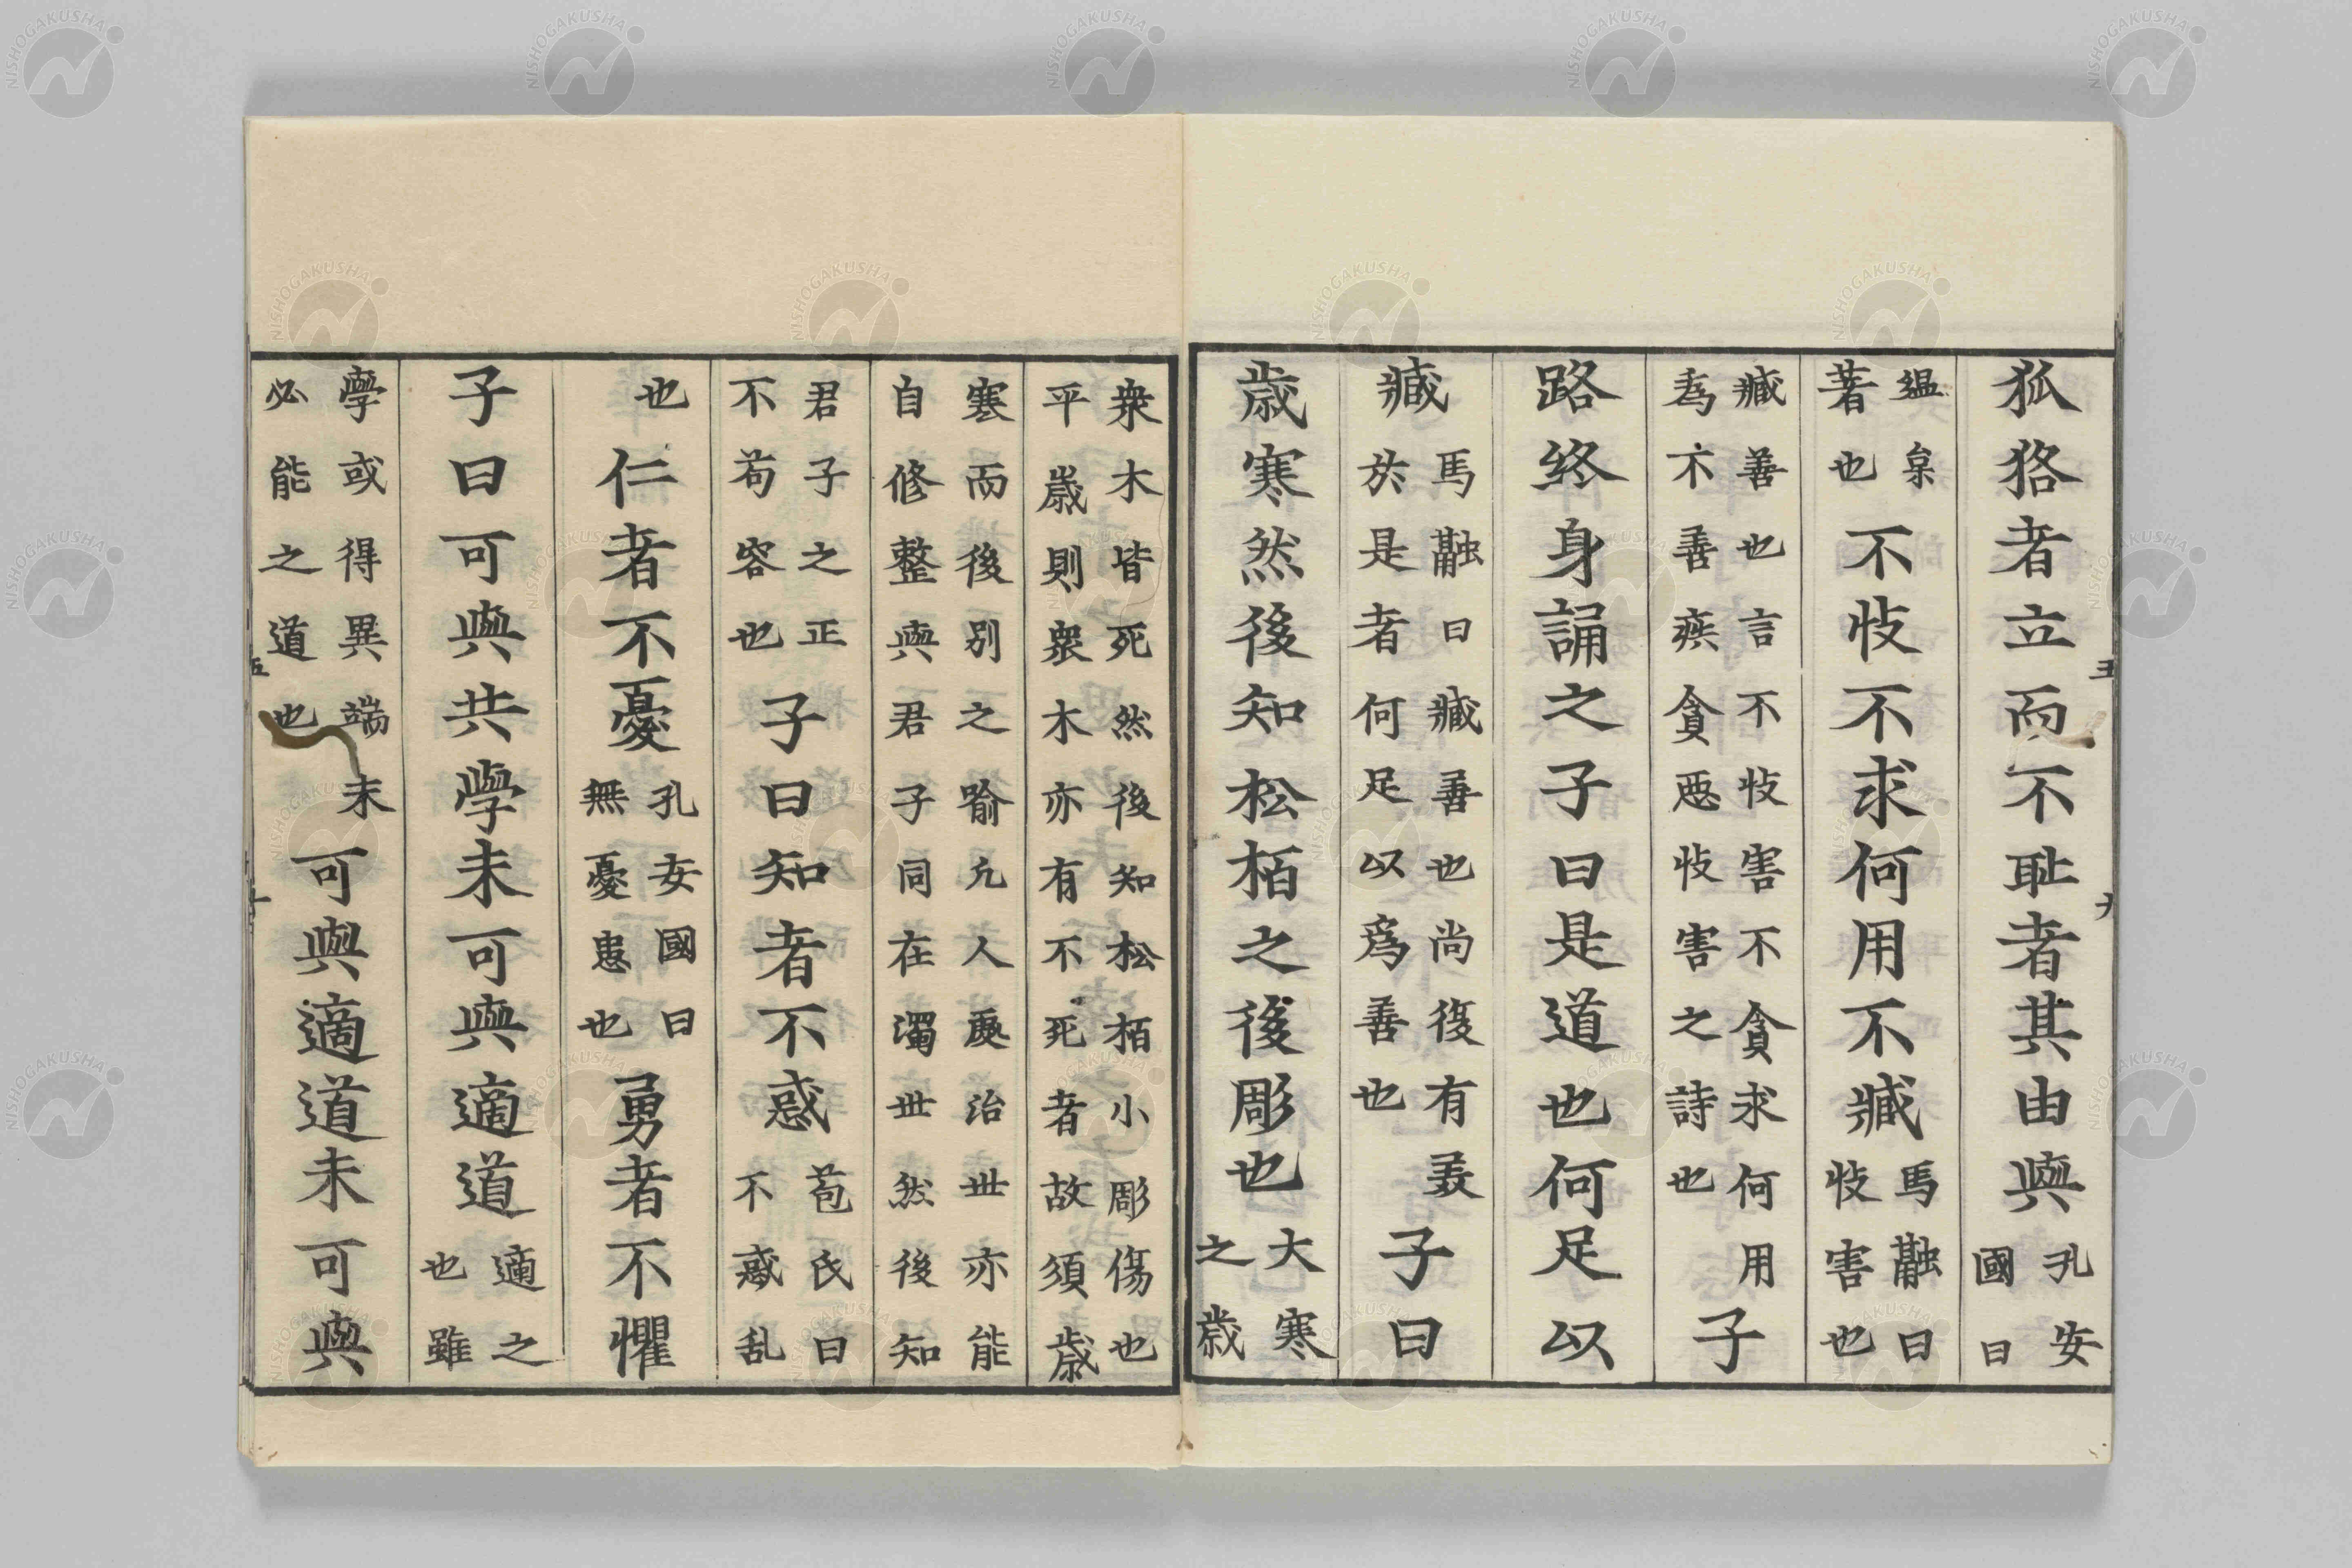 狐狢者立而不耻者其由與孔安國曰
緼枲著也不忮不求何用不臧馬融曰忮害也
臧善也言不忮害不貪求何用為不善疾貪惡忮害之詩也子
路終身誦之子曰是道也何足以
臧馬融曰臧善也尚復有美於是者何足以爲善也子曰
歳寒然後知松栢之後彫也大寒之歳
衆木皆死然後知松栢小彫傷也平歳則衆木亦有不死者故須歳
寒而後別之喻凡人處治世亦能自修整與君子同在濁世然後知
君子之正不苟容也子曰知者不惑苞氏曰不惑乱
也仁者不憂孔安國曰無憂患也勇者不懼
子曰可與共學未可與適道適之也雖
學或得異端未必能之道也可與適道未可與
NISHOGAKUSHA